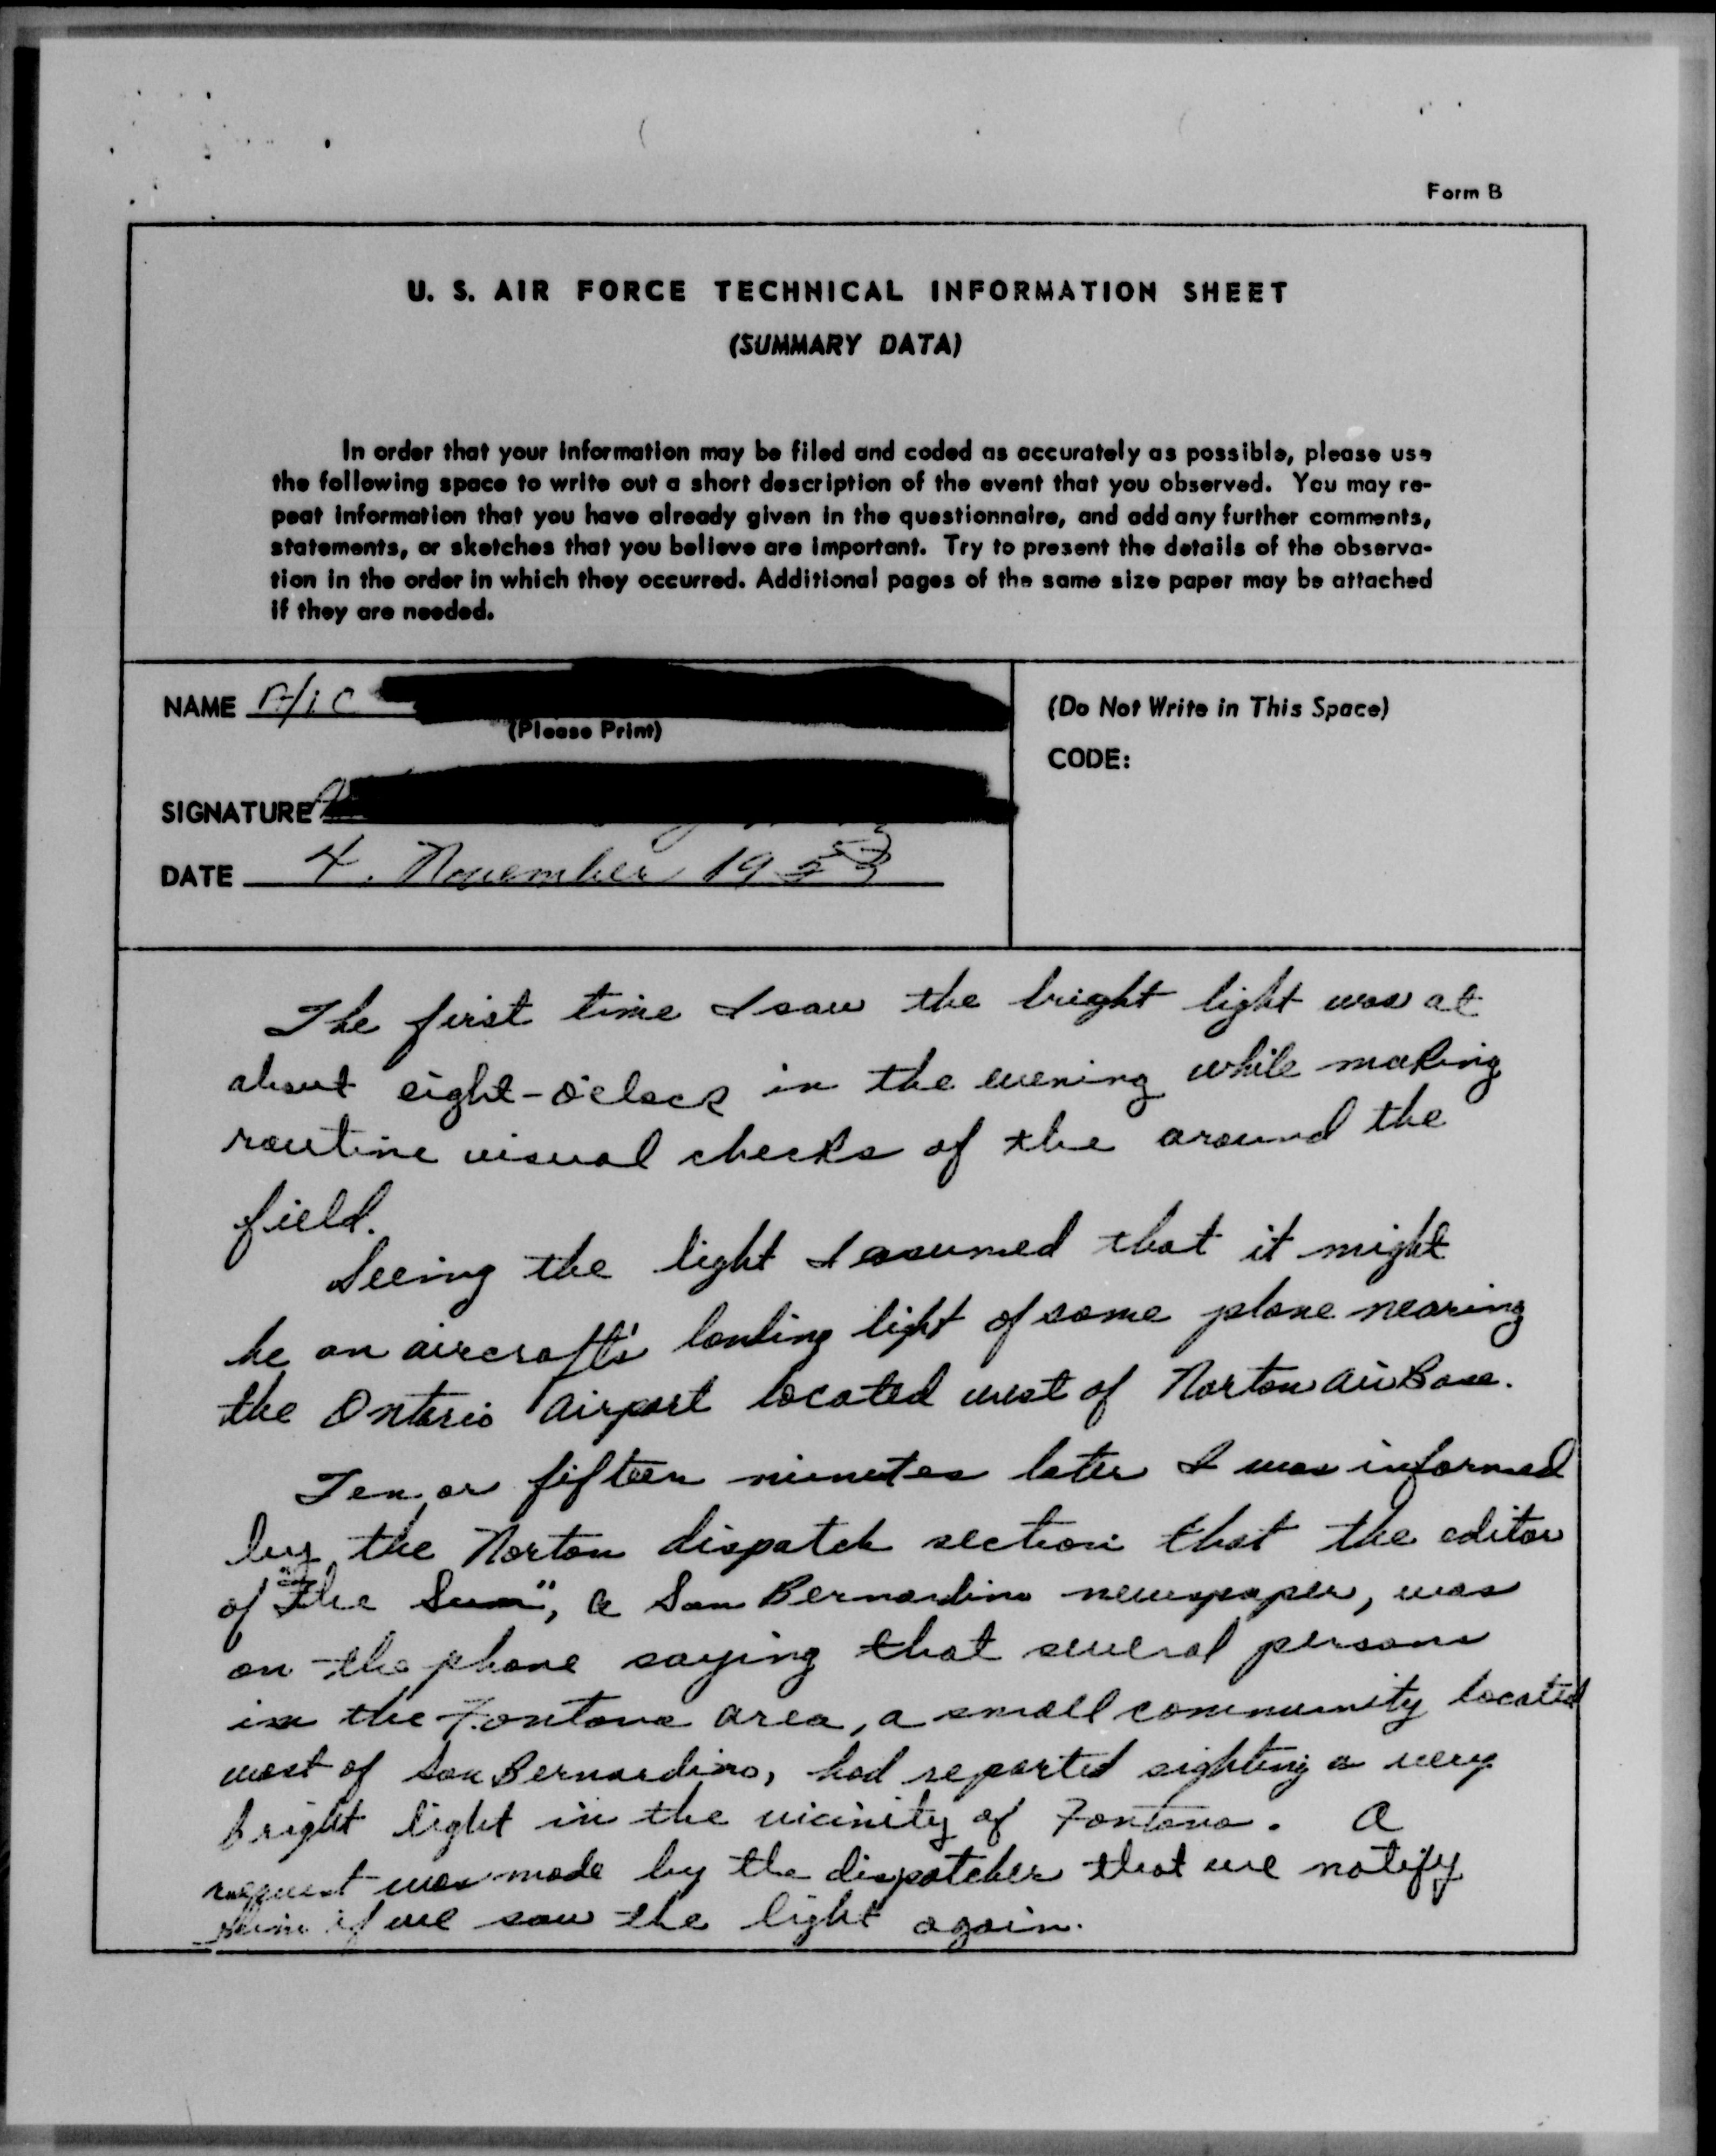 Form B
U. S. AIR FORCE TECHNICAL INFORMATION SHEET
(SUMMARY DATA)
In order that your information may be filed and coded as accurately as possible, please use
the following space to write out a short description of the event that you observed. You may re-
peat information that you have already given in the questionnaire, and add any further comments,
statements, or sketches that you believe are important. Try to present the details of the observa-
tion in the order in which they occurred. Additional pages of the same size paper may be attached
if they are needed.
NAME A/1C
(Please Print)
SIGNATURE
DATE 4. November 1953
(Do Not Write in This Space)
CODE:
The first time I saw the bright light was at
about eight-o'clock in the evening while making
routine visual checks of the around the
field.
Seeing the light I assumed that it might
be an aircraft's landing light of some plane nearing
the Ontario Airport located west of Norton Air Base.
Ten or fifteen minutes later I was informed
by the Norton dispatch section that the editor
of "The Sun", a San Bernardino newspaper, was
on the phone saying that several persons
in the Fontana area, a small community located
west of San Bernardino, had reported sighting a very
bright light in the vicinity of Fontana. A
request was made by the dispatcher that we notify
him if we saw the light again.